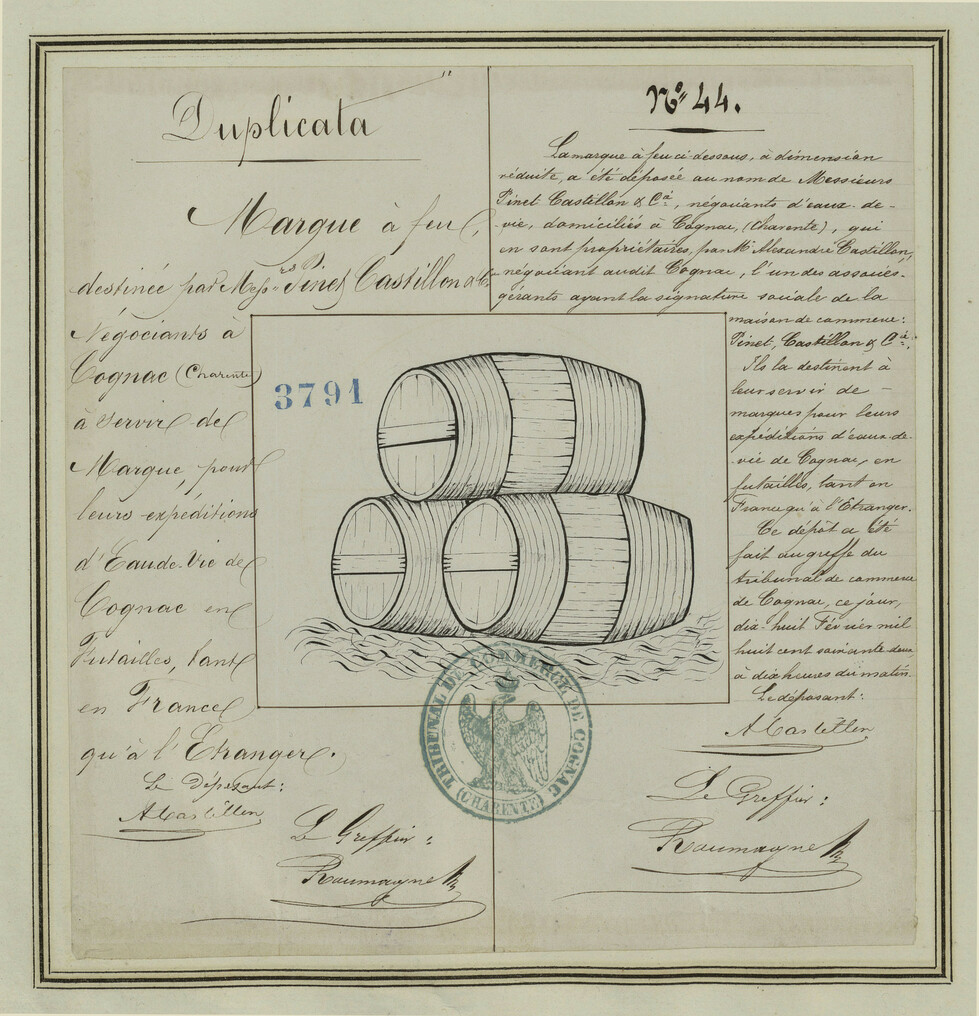 Duplicata
Marque à feu,
destinée par Mess.rs Pinet Castillon & Cie
Négociants à
Cognac (Charente)
à servir de
Marque, pour
leurs expéditions
d'Eau-de-Vie de
Cognac en
Futailles, tant
en France
qu'à l'Etranger.
Le Déposant:
ACastillon
Le Greffier:
Roumagne
No 44.
La marque à feu ci-dessous, à dimension
réduite, a été déposée au nom de Messieurs
Pinet Castillon & Cie, négociants d'eaux-de-
vie, domiciliés à Cognac, (Charente), qui
en sont propriétaires, par Mr Alexandre Castillon,
négociant audit Cognac, l'un des associés-
gérants ayant la signature sociale de la
maison de commerce:
Pinet, Castillon & Cie,
Ils la destinent à
leur servir de
marques pour leurs
expéditions d'eaux-de-
vie de Cognac, en
futailles, tant en
France qu'à l'Etranger.
Ce dépôt a été
fait au greffe du
tribunal de commerce
de Cognac, ce jour,
dix-huit Février mil
huit cent soixante deux,
à dix heures du matin.
Le déposant:
ACastillon
Le Greffier:
Roumagne
3791
TRIBUNAL DE COMMERCE DE COGNAC
(CHARENTE)